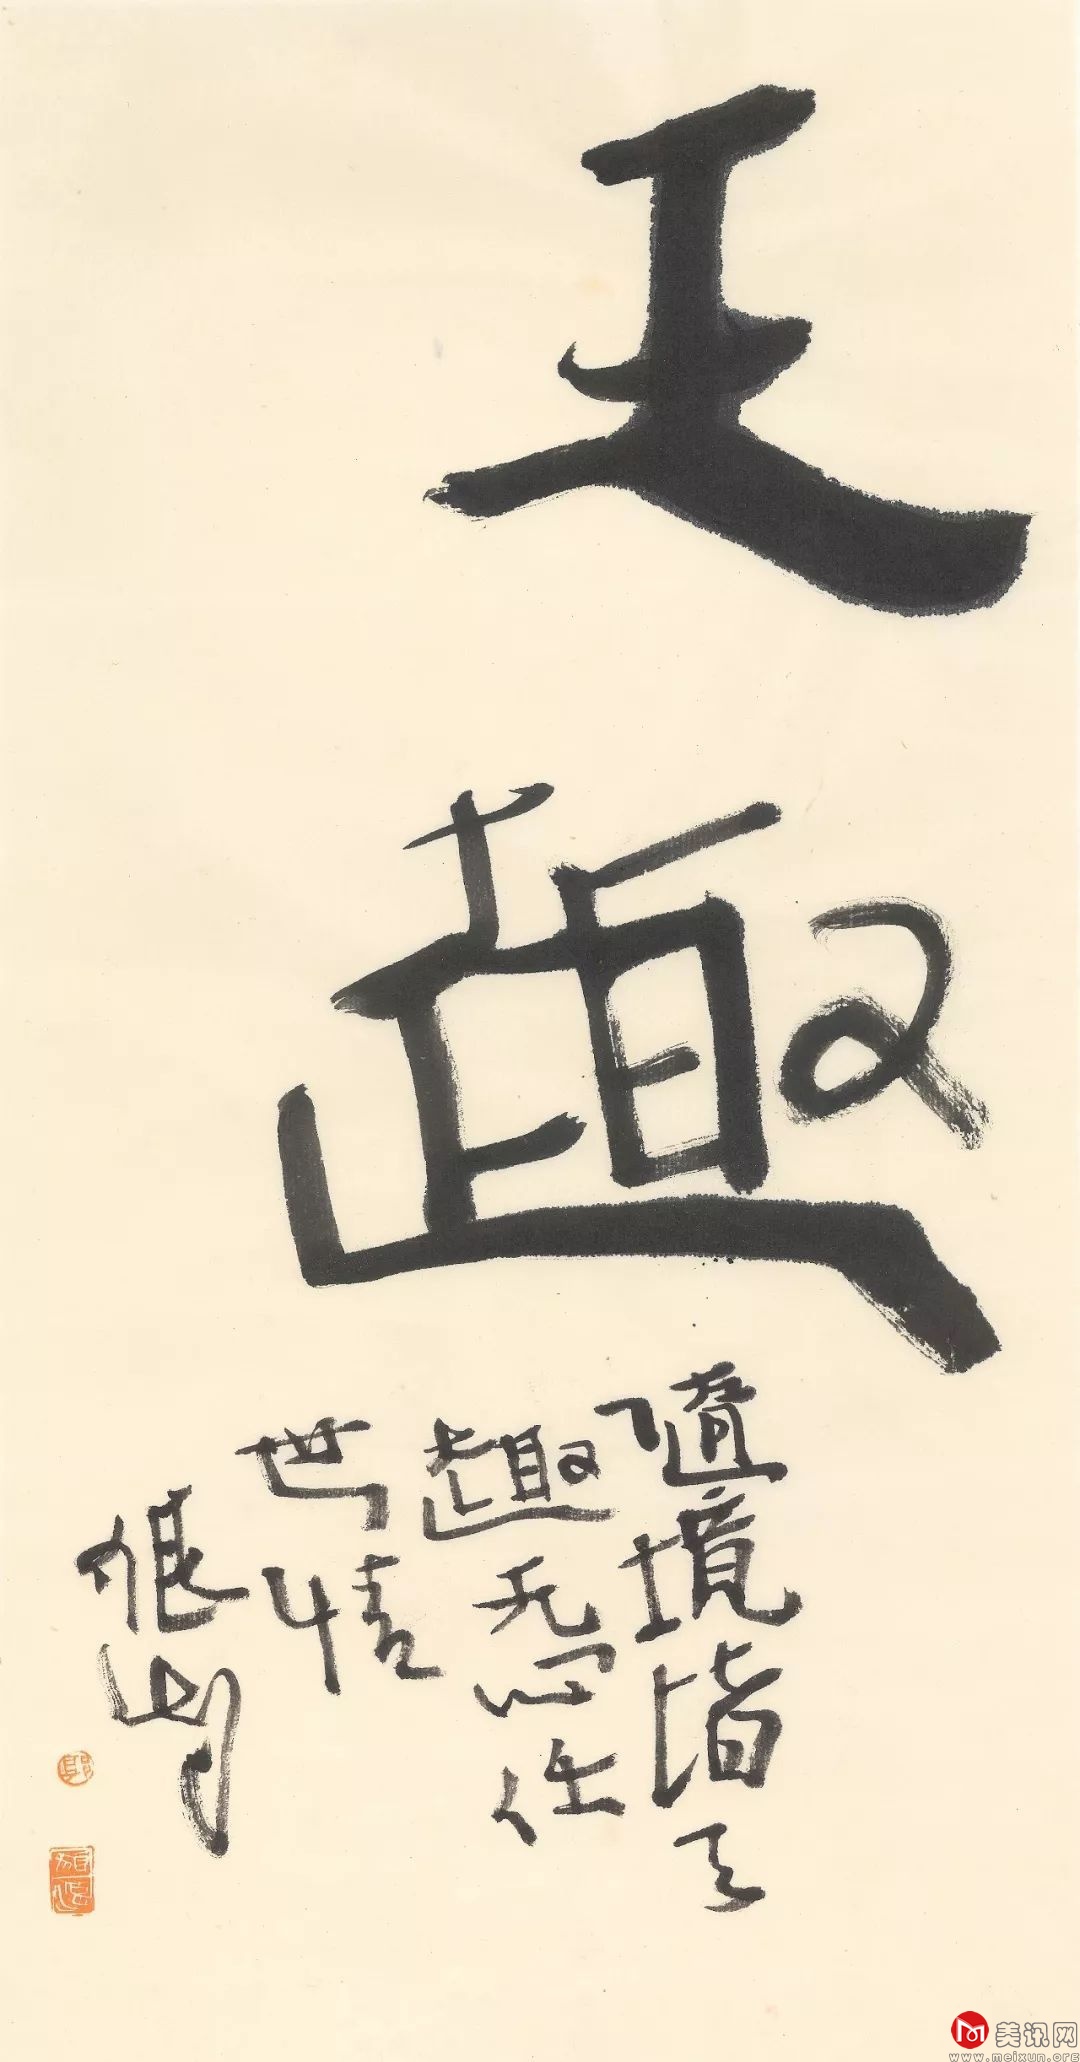 天趣
随境皆天
趣无心任
世情
美讯网
www.meixun.org